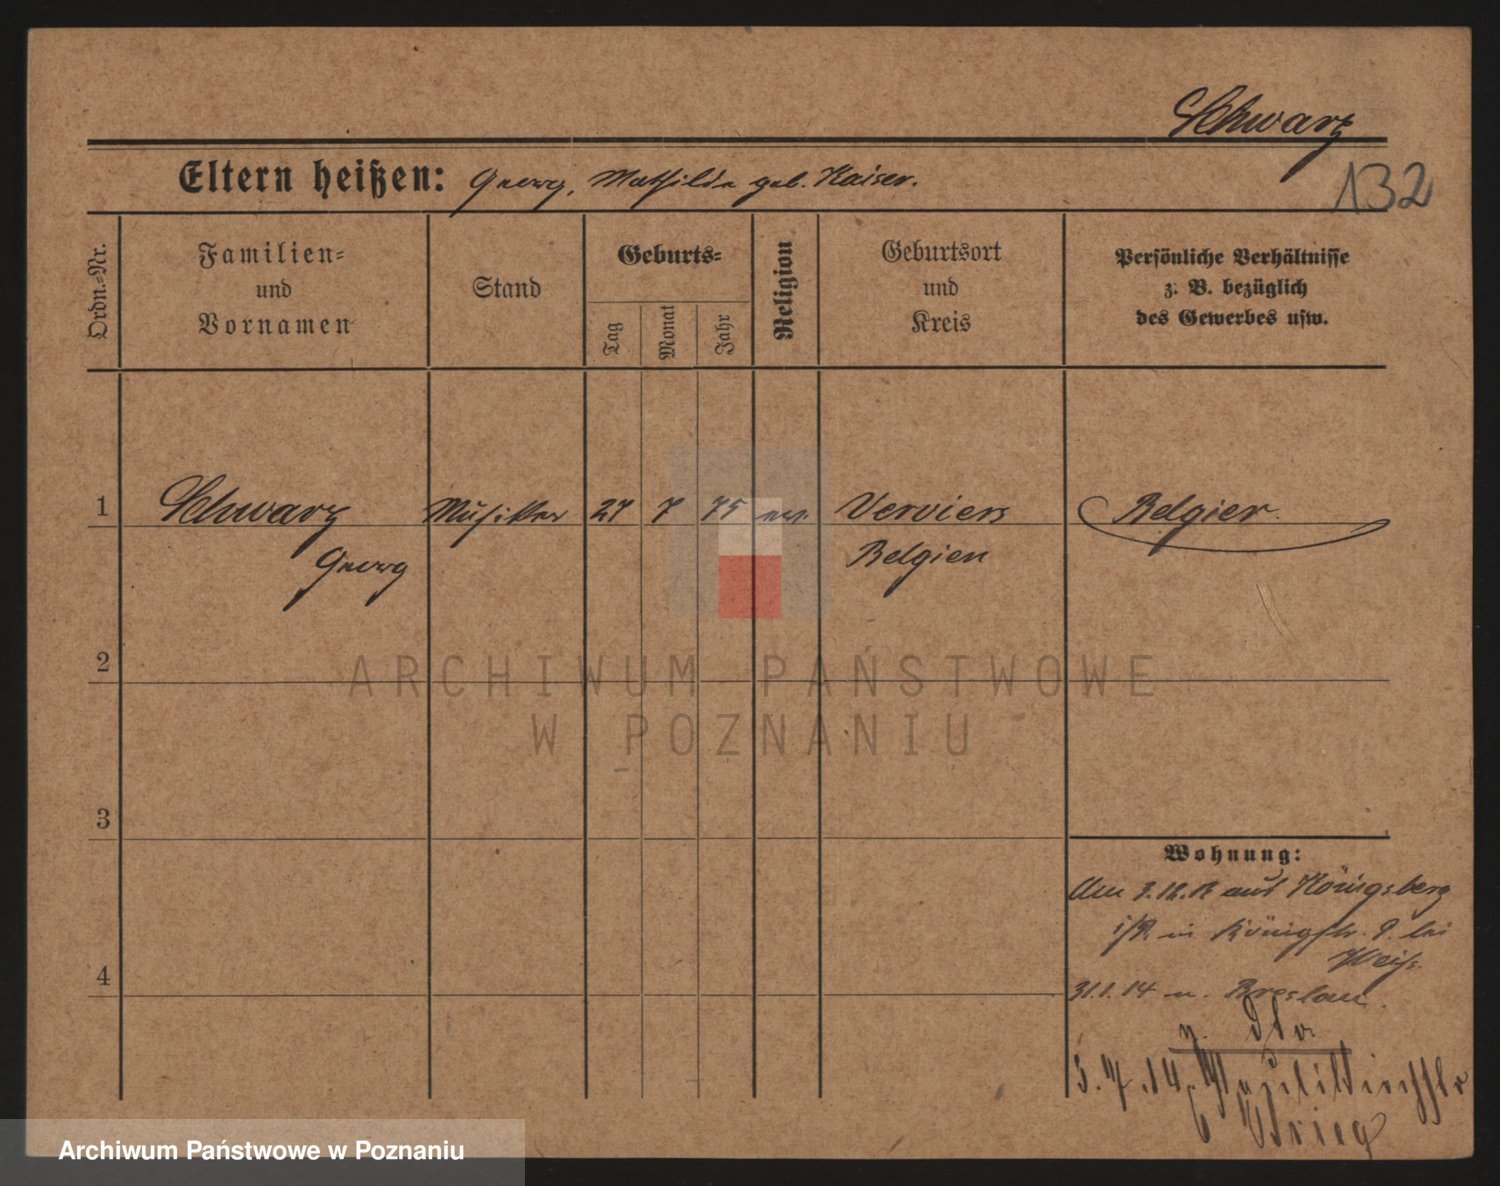 Schwarz
132
Eltern heißen: Georg, Mathilde geb. Kaiser.
Ordn.-Nr.
Familien-
und
Vornamen
Stand
Geburts-
Tag
Monat
Jahr
Religion
Geburtsort
und
Kreis
Persönliche Verhältnisse
z. B. bezüglich
des Gewerbes usw.
1 Schwarz Musiker 27 7 75 Verviers Belgier
Georg Belgien
2
3
4
Wohnung:
Am aus Königsberg
i/P. in Königstr. 9. bei
31.1.14 n. Breslau.
3.7.14
Brieg
ARCHIWUM PAŃSTWOWE
W POZNANIU
Archiwum Państwowe w Poznaniu